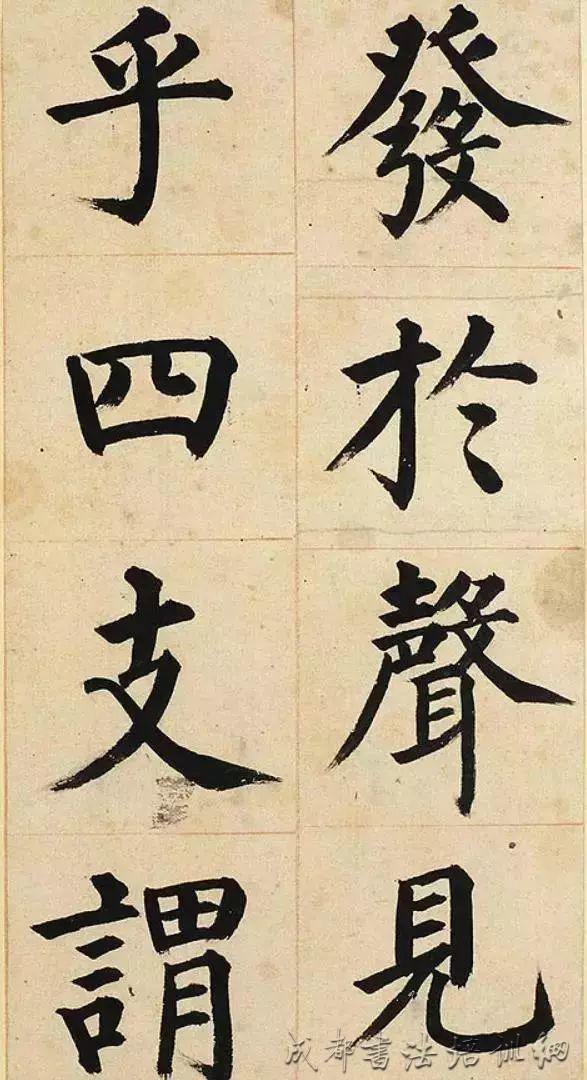 發於聲見
乎四支謂
成都書法培训網